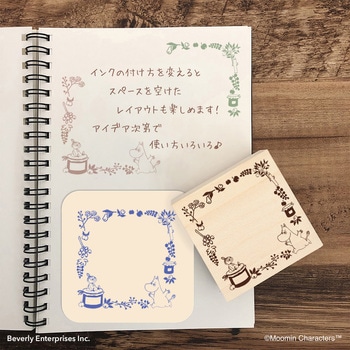 インクの付け方を変えると
スペースを空けた
レイアウトも楽しめます!
アイデア次第で
使い方いろいろ♪
Beverly Enterprises Inc.
©Moomin Characters™